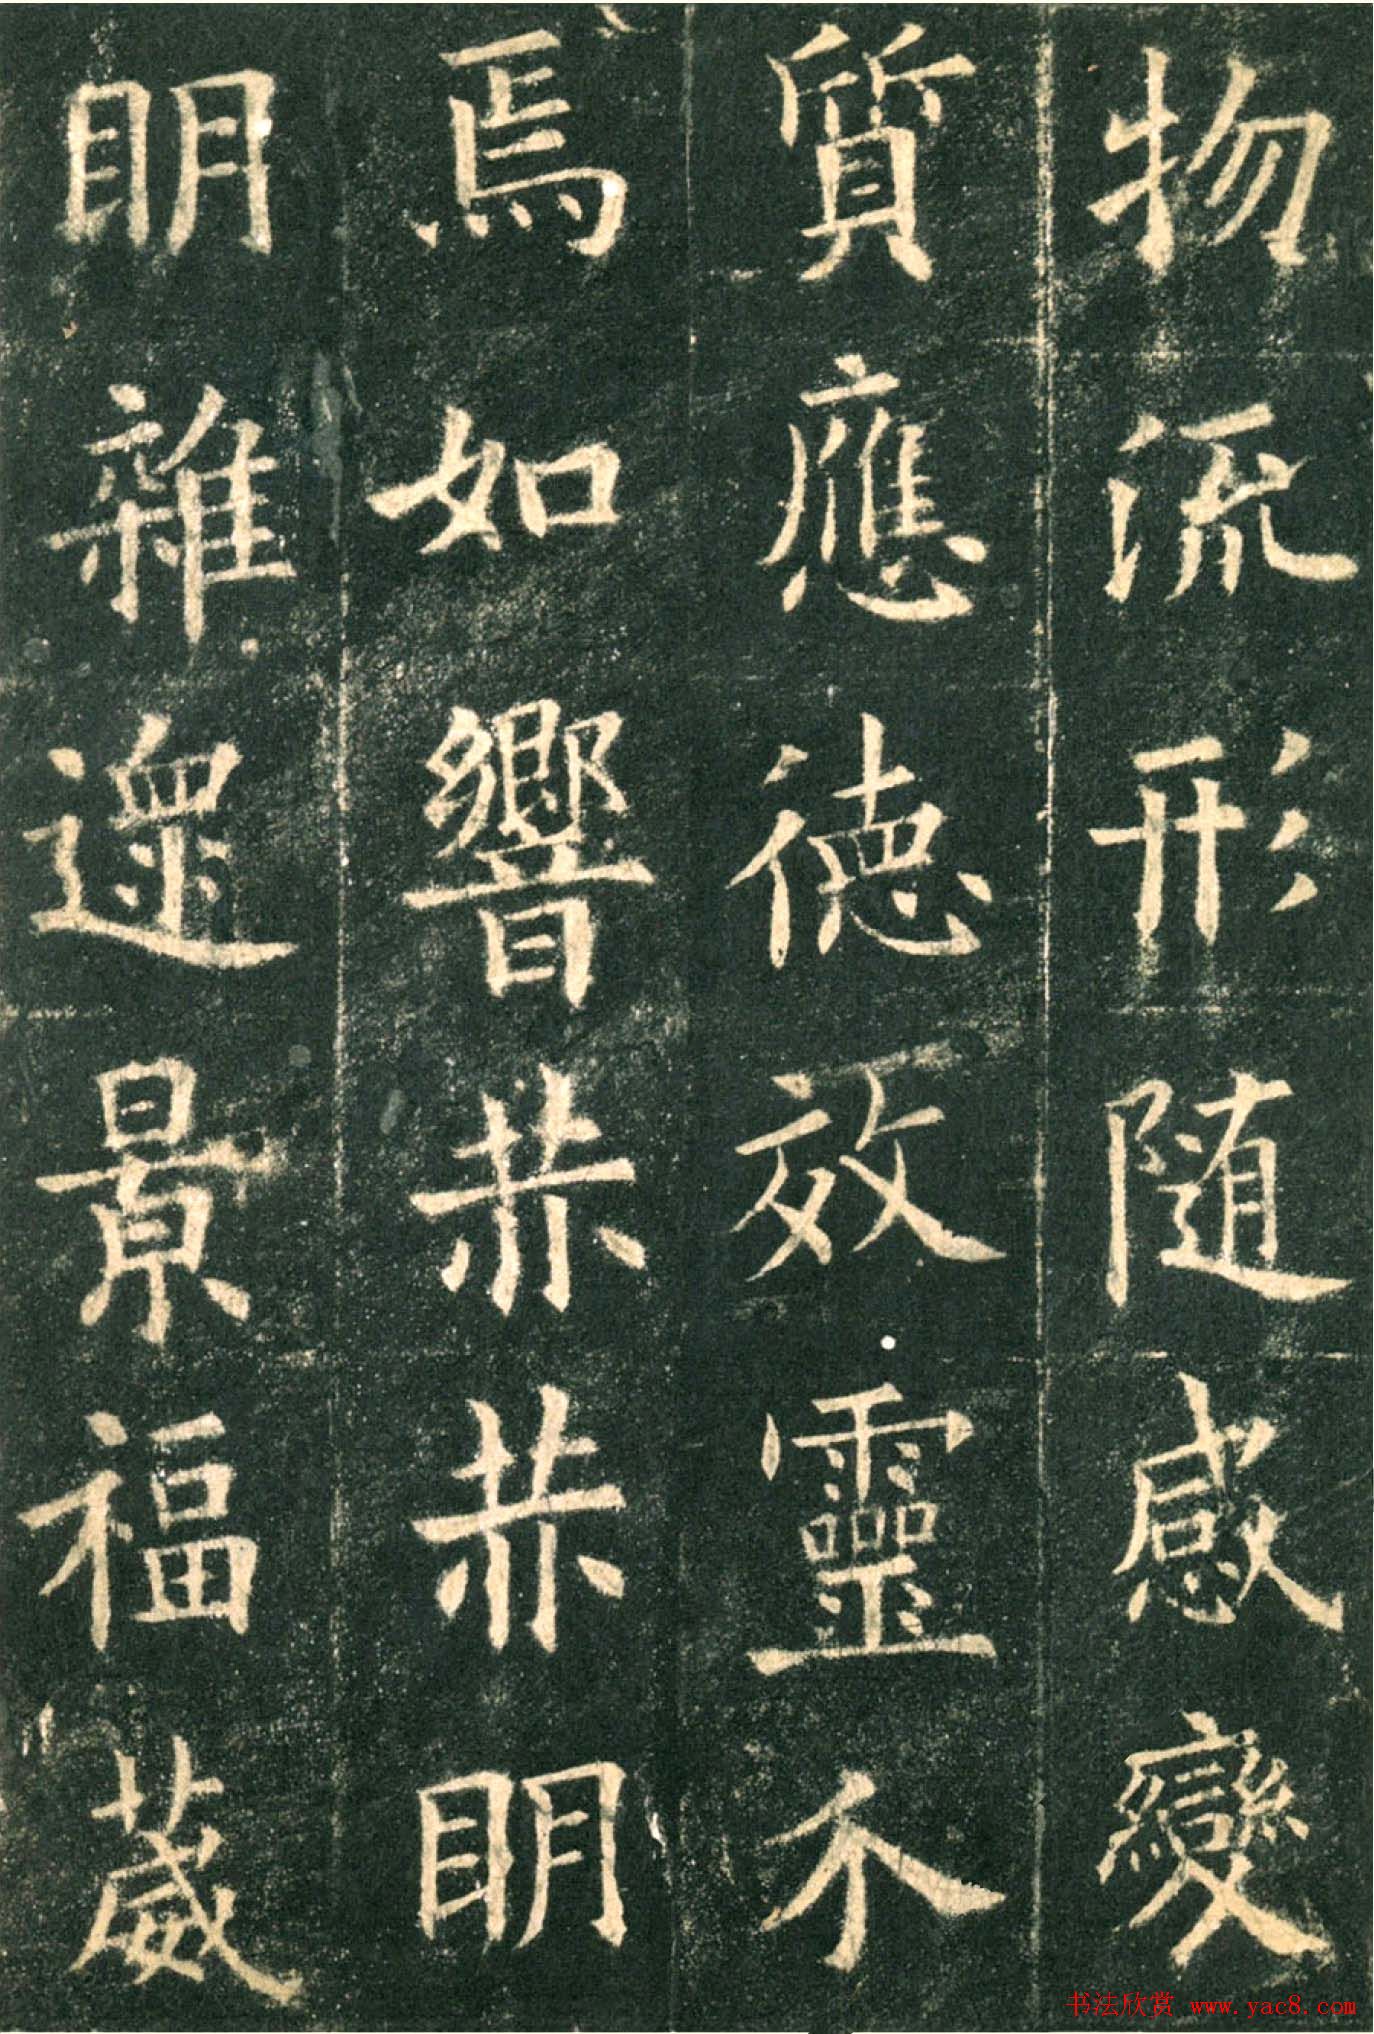 物流形随感變
質應德效靈不
焉如響赫赫明
明雜遝景福葳
书法欣赏 www.yac8.com